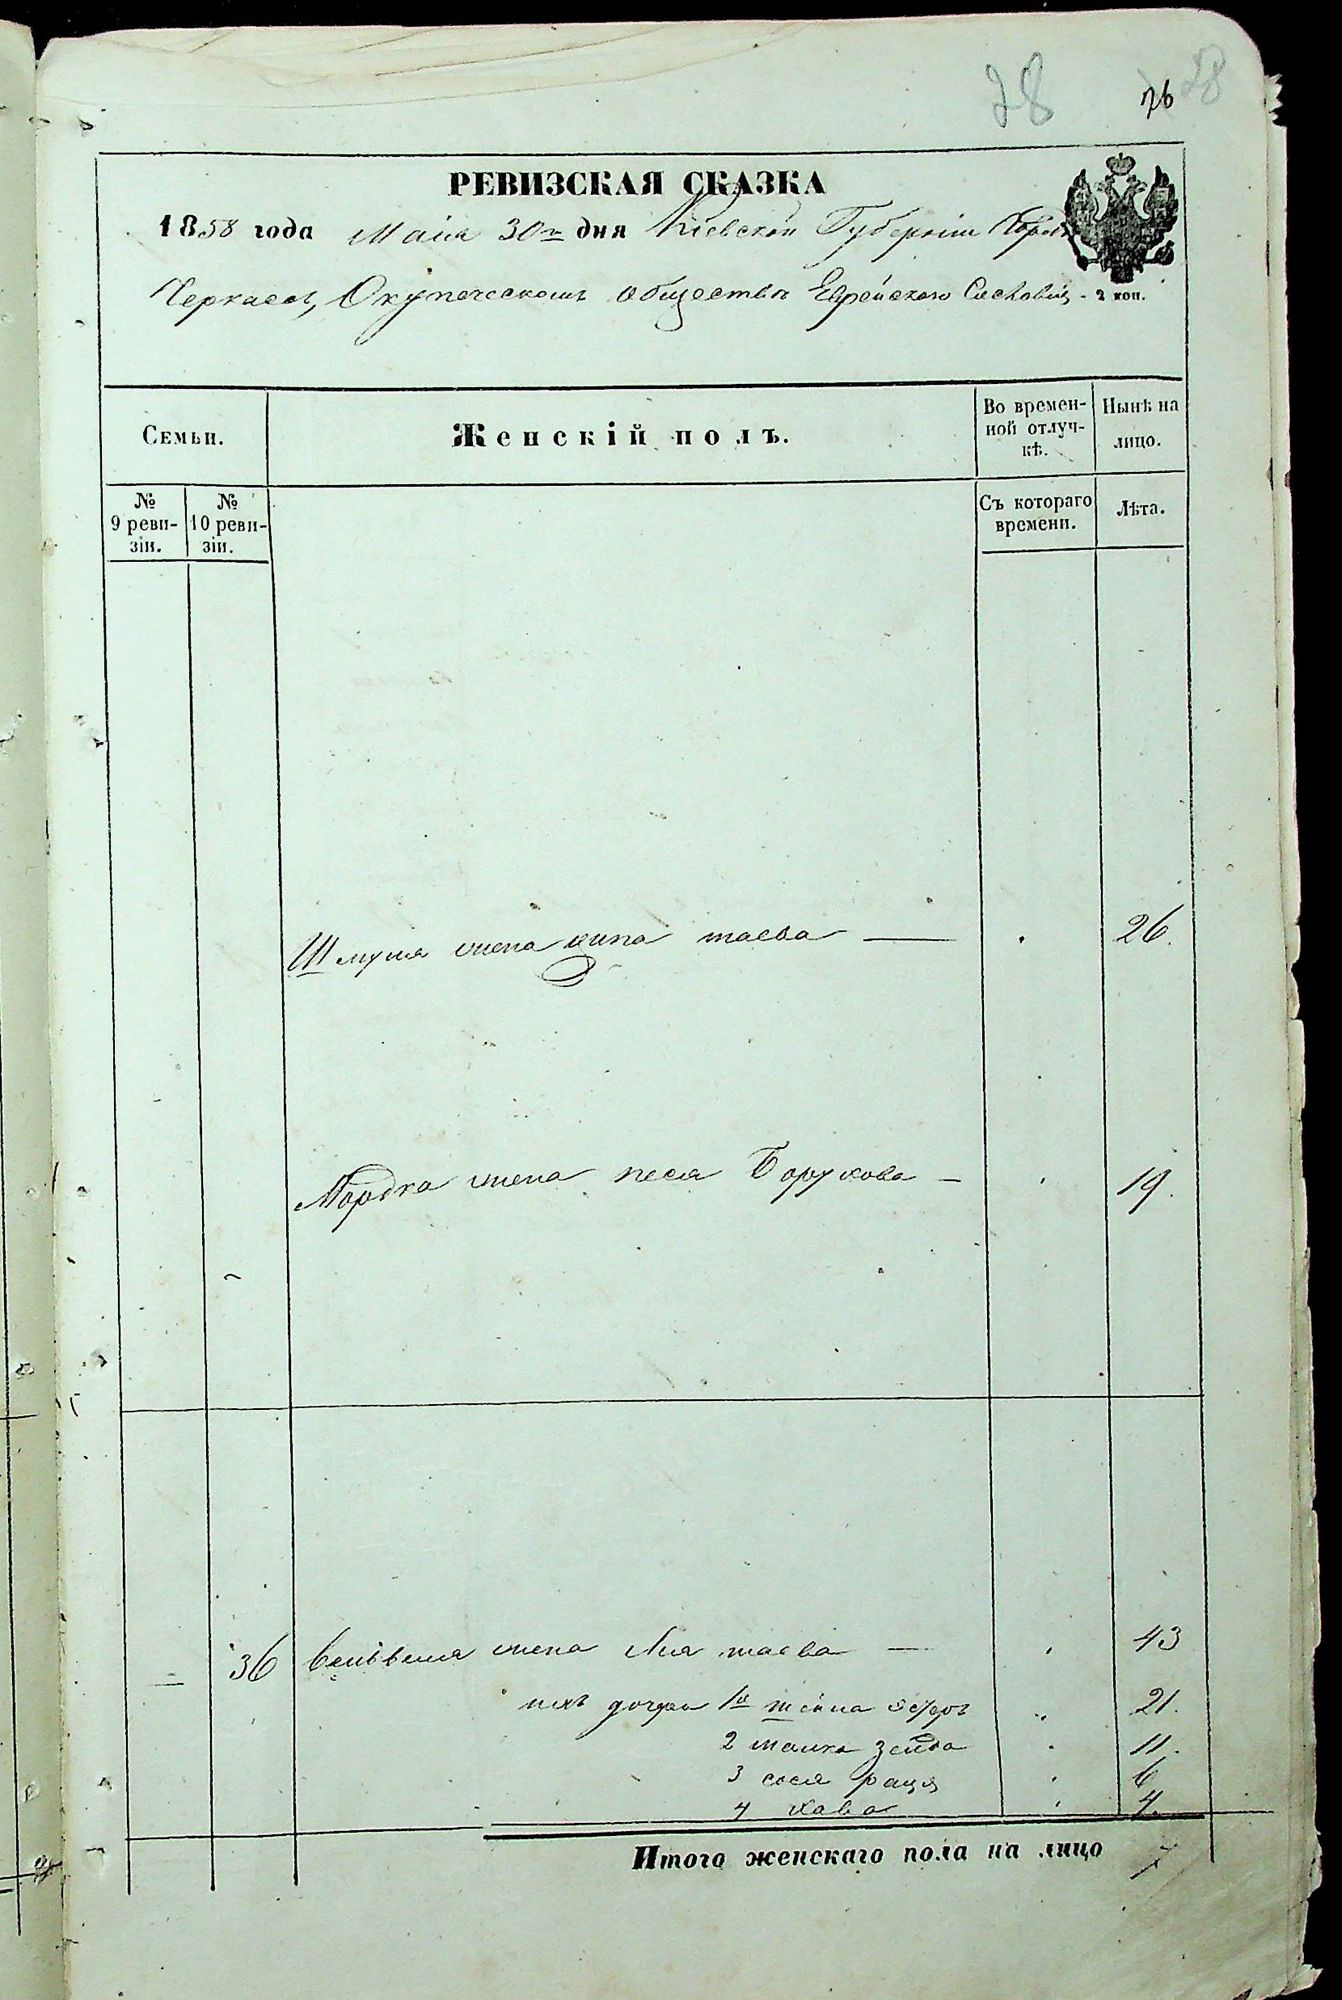 28 76 28
РЕВИЗСКАЯ СКАЗКА
1858 года Маія 30го дня Кіевской Губерніи Города
Черкасъ, О купеческомъ обществѣ Еврейского Сословія - 2 коп.
Семьи.
Женскій полъ.
Во времен-
ной отлуч-
кѣ.
Нынѣ на
лицо.
№
9 реви-
зіи.
№
10 реви-
зіи.
Съ котораго
времени.
Лѣта.
Шмуля жена ципа таева — 26.
Мордка жена песя Борухова — 19.
36 жена Лія таева — 43
ихъ дочери 1я 21.
2 малка зелда 11.
3 сося рация 6
4 хава 4.
Итого женскаго пола на лицо 7